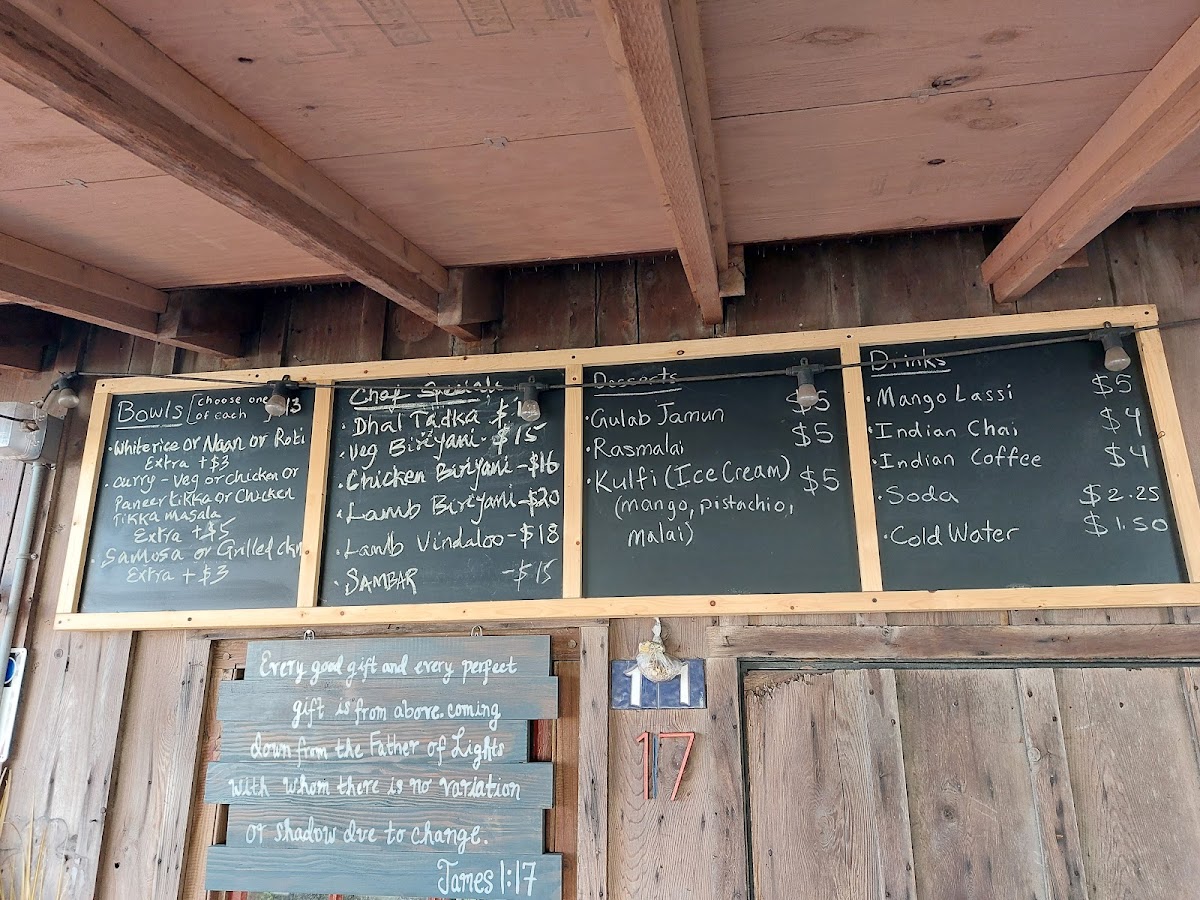 Bowls [choose one of each 13
• White rice or Naan or Roti
Extra +$3
• curry - veg or chicken or
Paneer tikka or chicken
tikka masala
Extra +$5
• Samosa or Grilled ckn
Extra +$3
Chef Specials
• Dhal Tadka $
• Veg Biriyani - $15
• Chicken Biriyani - $16
• Lamb Biriyani - $20
• Lamb Vindaloo - $18
• SAMBAR - $15
Desserts
• Gulab Jamun $5
• Rasmalai $5
• Kulfi (Ice Cream) $5
(mango, pistachio,
malai)
Drinks
• Mango Lassi $5
• Indian Chai $4
• Indian Coffee $4
• Soda $2.25
• Cold Water $1.50
Every good gift and every perfect
gift is from above. coming
down from the Father of Lights
with whom there is no variation
or shadow due to change.
James 1:17
17